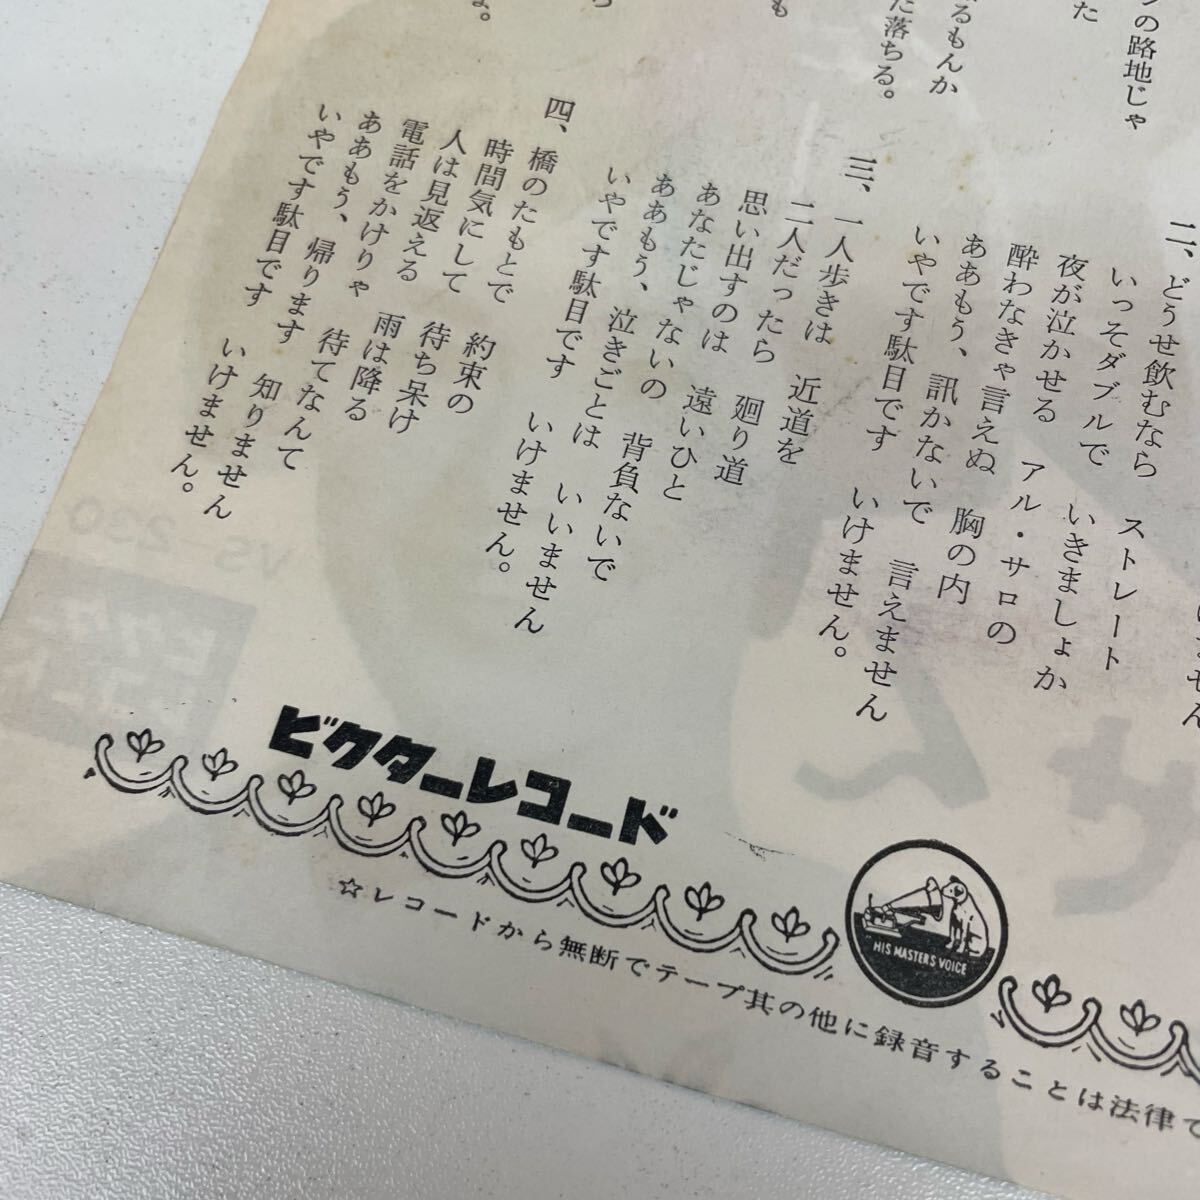 の路地じゃ
た
るもんか
た落ちる。
も
ら
よ。
二、どうせ飲むなら　ストレート
いっそダブルで　いきましょか
夜が泣かせる　アル・サロの
酔わなきゃ言えぬ　胸の内
ああもう、訊かないで　言えません
いやです駄目です　いけません。
三、一人歩きは　近道を
二人だったら　廻り道
思い出すのは　遠いひと
あなたじゃないの　背負ないで
ああもう、泣きごとは　いいません
いやです駄目です　いけません。
四、橋のたもとで　約束の
時間気にして　待ち呆け
人は見返える　雨は降る
電話をかけりゃ　待てなんて
ああもう、帰ります　知りません
いやです駄目です　いけません。
せん
VS-230
ビクターレコード
HIS MASTERS VOICE
☆レコードから無断でテープ其の他に録音することは法律で